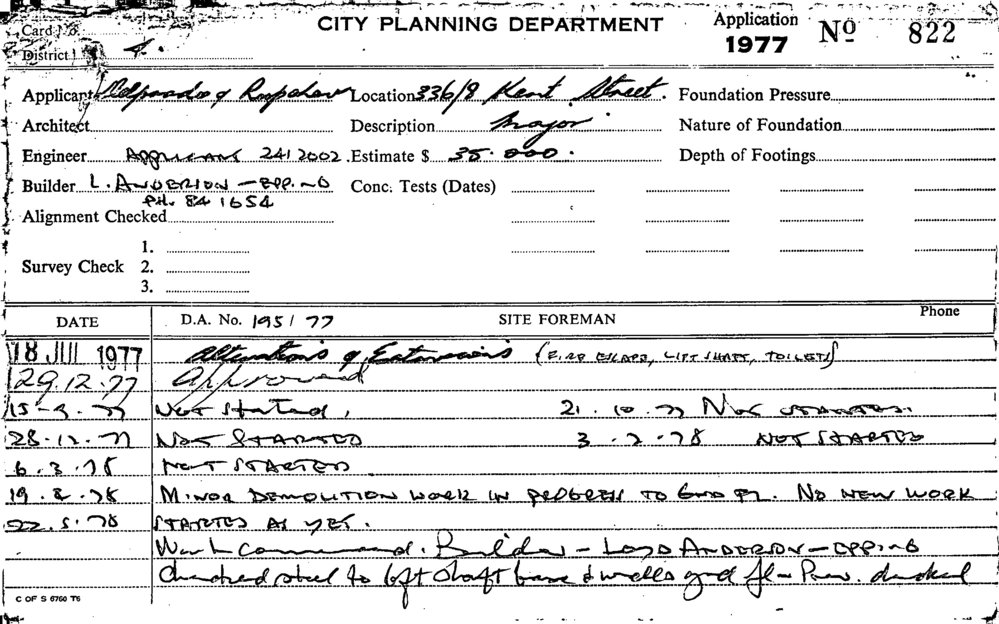 Card
CITY PLANNING DEPARTMENT
Application
1977
No 822
District 4.
Applicant Location 336/8 Kent Street. Foundation Pressure
Architect Description Major Nature of Foundation
Engineer APPLICANT 241 2002. Estimate $ 35.000. Depth of Footings
Builder L. ANDERSON - EPPING Conc. Tests (Dates)
PH. 84 1654
Alignment Checked
1.
Survey Check 2.
3.
DATE D.A. No. 195/77 SITE FOREMAN Phone
18 JUL 1977 Alterations & Extensions (FIRE ESCAPE, LIFT SHAFT, TOILETS)
29.12.77 Approved
Not Started, 21.10.77 NOT STARTED.
28.12.77 NOT STARTED 3.2.78 NOT STARTED
6.3.78 NOT STARTED
MINOR DEMOLITION WORK IN PROGRESS TO GND FL. NO NEW WORK
22.5.78 STARTED AS YET.
Work commenced. Builder - LOYD ANDERSON - EPPING
Checked steel to lift shaft base & walls grd fl -
C OF S 6760 T6